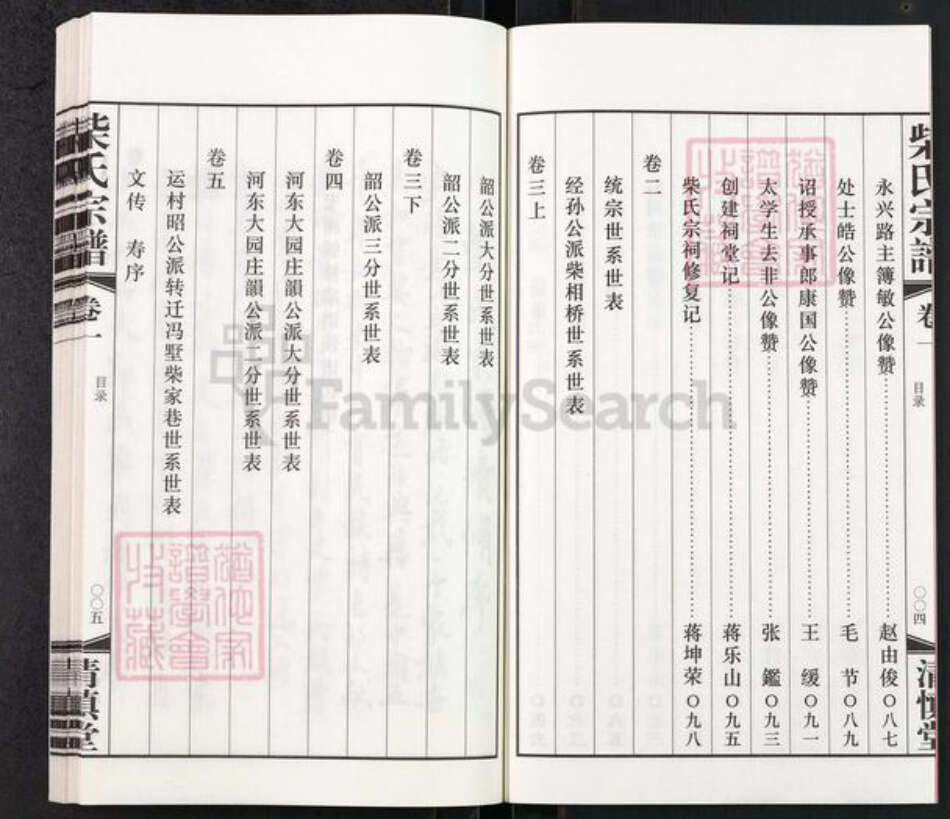 柴氏宗譜
卷一
目录
〇〇四
清慎堂
永兴路主簿敏公像赞……赵由俊〇八七
处士皓公像赞……毛 节〇八九
诏授承事郎康国公像赞……王 缓〇九一
太学生去非公像赞……张 鑑〇九三
创建祠堂记……蒋乐山〇九五
柴氏宗祠修复记……蒋坤荣〇九八
卷二
统宗世系世表
经孙公派柴相桥世系世表
卷三上
韶公派大分世系世表
韶公派二分世系世表
卷三下
韶公派三分世系世表
卷四
河东大园庄韻公派大分世系世表
河东大园庄韻公派二分世系世表
卷五
运村昭公派转迁冯墅柴家巷世系世表
文传 寿序
柴氏宗譜
卷一
目录
〇〇五
清慎堂
FamilySearch